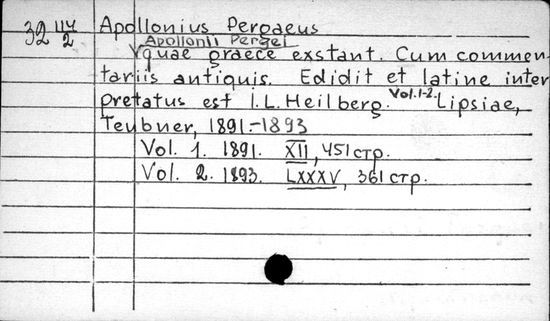 32 114/2 Apollonius Pergaeus
Apollonii Pergei
Vquae graece exstant. Cum commen-
tariis antiquis. Edidit et latine inter
pretatus est I.L. Heilberg. Vol.1-2. Lipsiae,
Teubner, 1891.-1893
Vol. 1. 1891. XII, 451 стр.
Vol. 2. 1893. LXXXV, 361 стр.